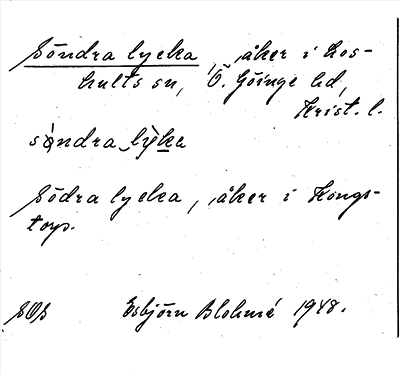 Söndra lycka, åker i Los-
hults sn, Ö. Göinge hd,
Krist. l.
söndra lỳka
Södra lycka, åker i Kongs-
torp.
Esbjörn Blohmé 1948.